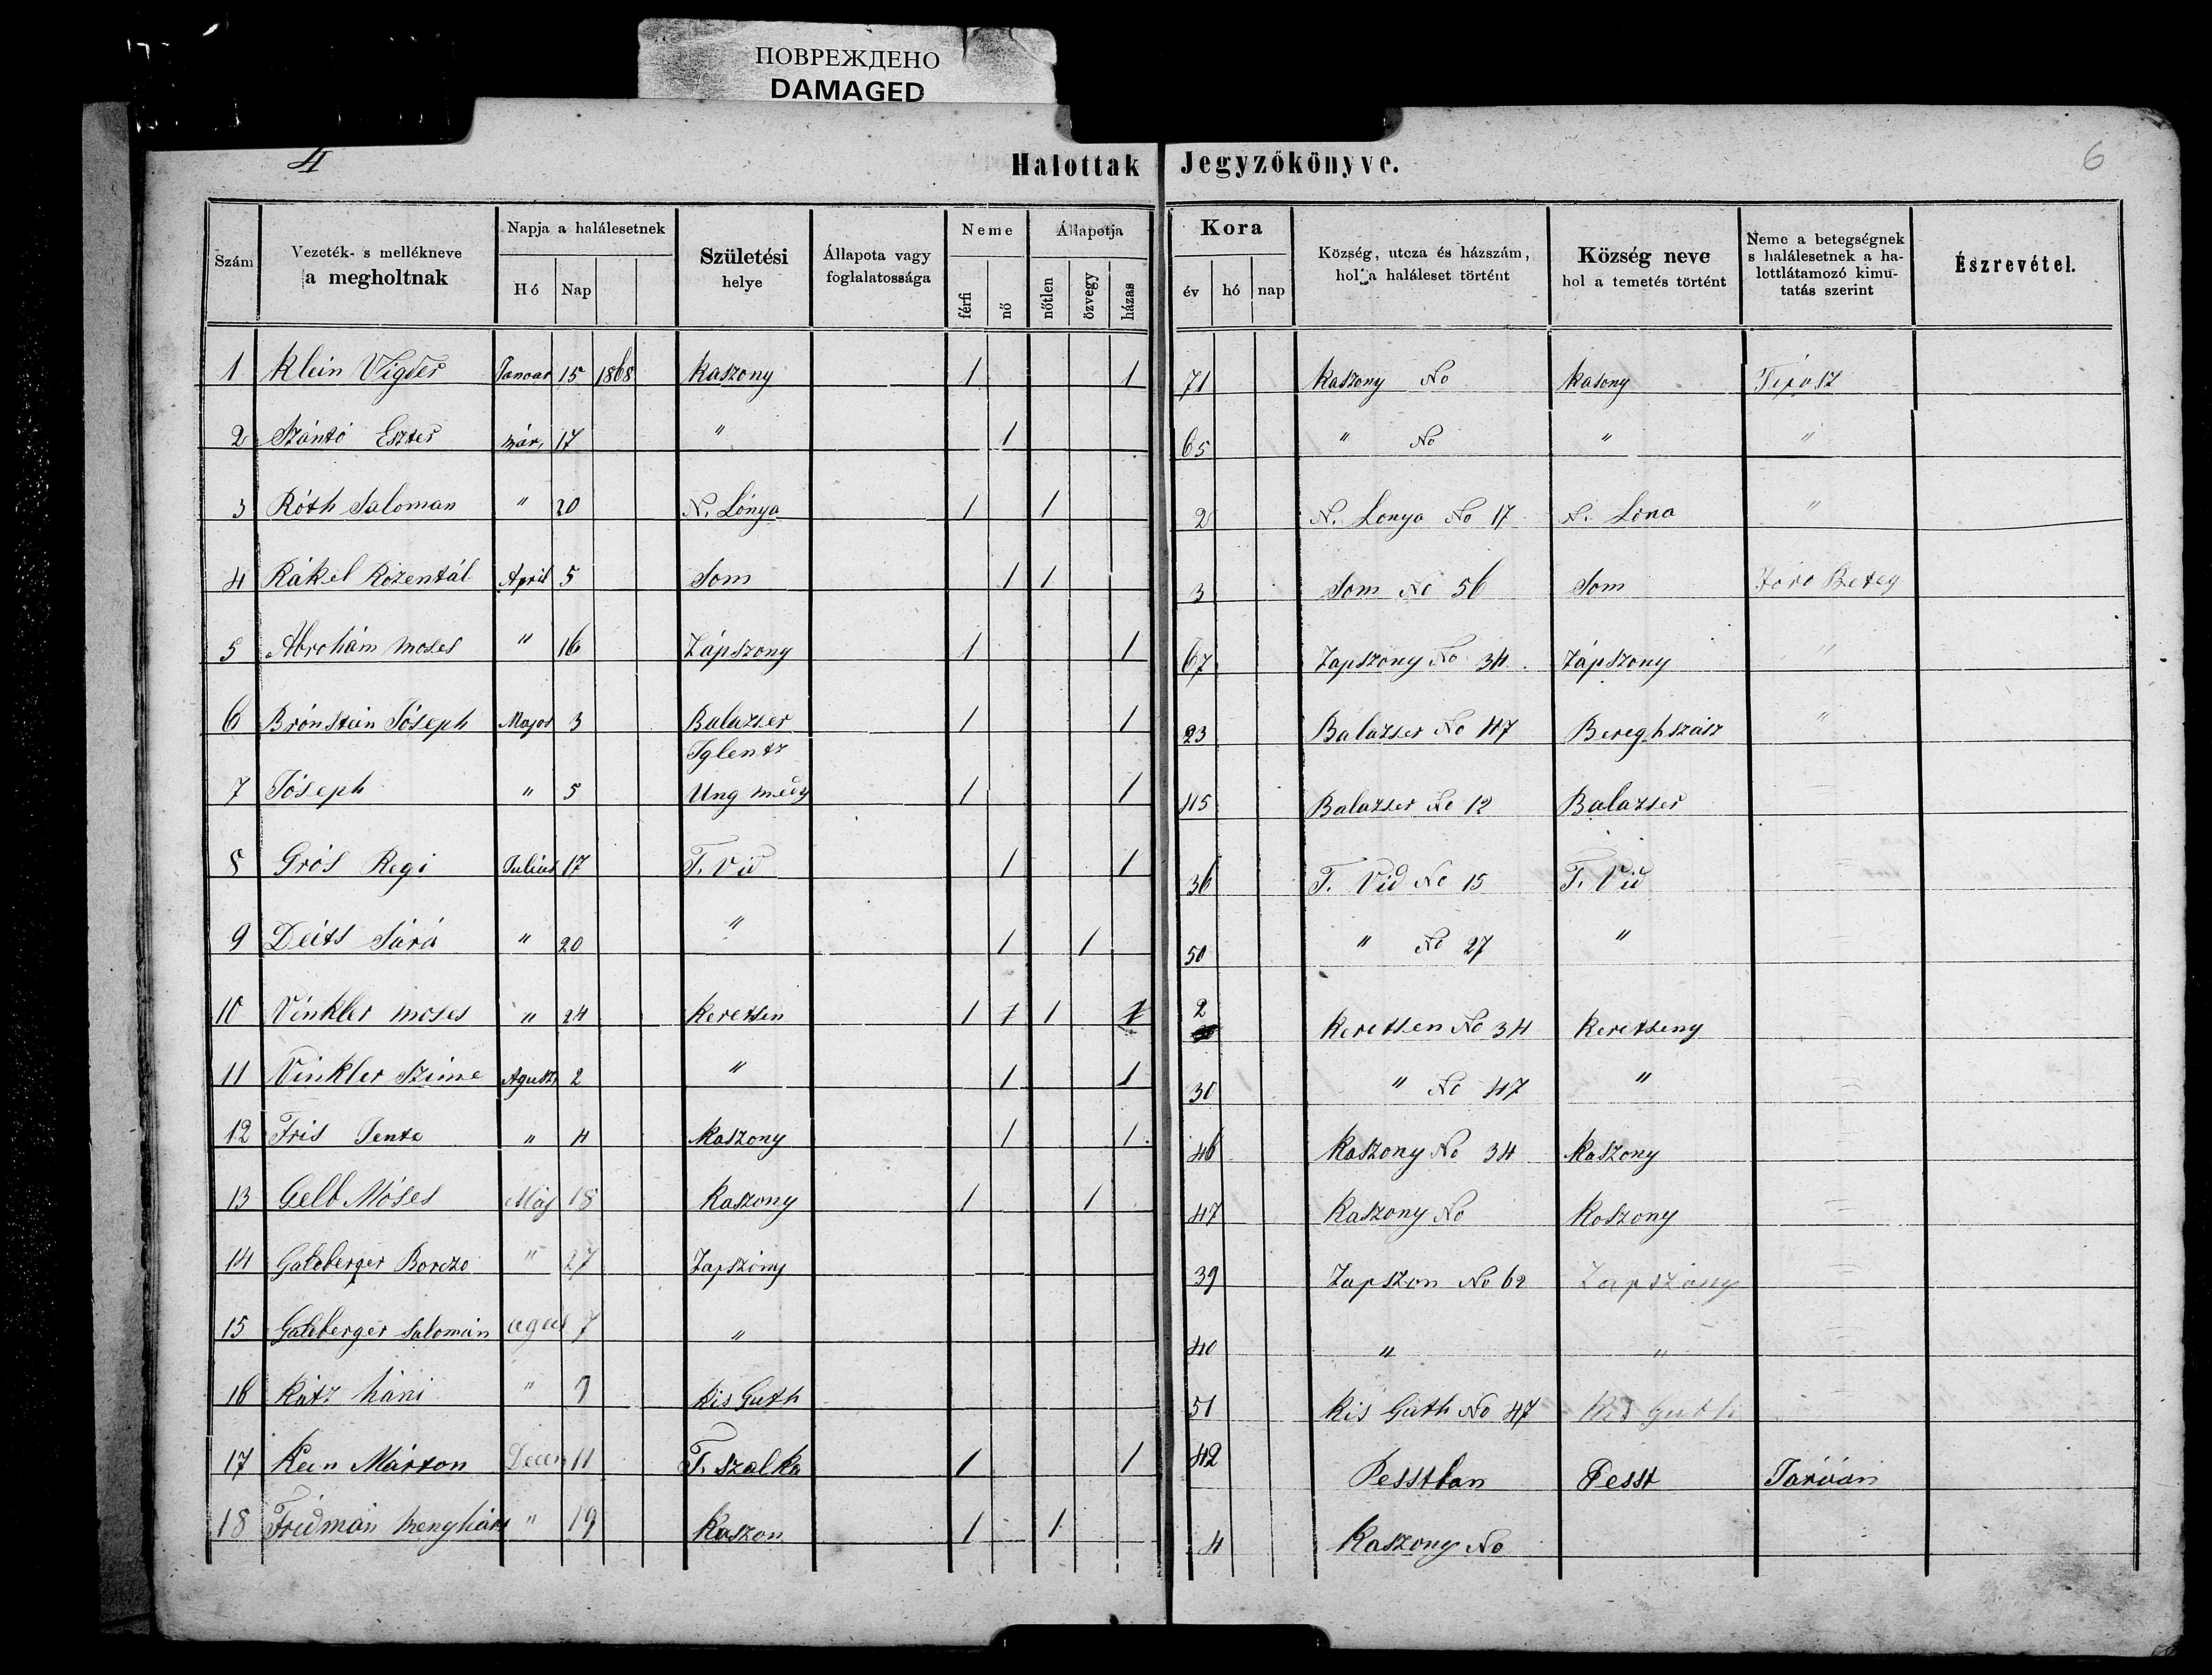 ПОВРЕЖДЕНО
DAMAGED
4
Halottak Jegyzőkönyve.
6
Szám | Vezeték- s mellékneve a megholtnak | Napja a halálesetnek | Hó | Nap | Születési helye | Állapota vagy foglalatossága | Neme | férfi | nő | Állapotja | nőtlen | özvegy | házas | Kora | év | hó | nap | Község, utcza és házszám, hol a haláleset történt | Község neve hol a temetés történt | Neme a betegségnek s halálesetnek a halottlátamozó kimutatás szerint | Észrevétel.
1 Klein Vigder Januar 15 1868 Kaszony 1 1 71 Kaszony No Kasony Tifosz
2 Szántó Eszter már, 17 " 1 65 " No " "
3 Róth Saloman " 20 N. Lónya 1 1 2 N. Lonya No 17 N. Lona "
4 Rákel Rozentál April 5 Som 1 1 3 Som No 56 Som Beteg
5 Abrohám Moses " 16 Zápszony 1 1 67 Zapszony No 34 Zápszony "
6 Brónstein Jóseph Majos 3 Balazser 1 1 23 Balazser No 47 Bereghszász "
Iglentz
7 Jóseph " 5 Ung megy 1 1 45 Balazser No 12 Balazser
8 Grós Regi Julius 17 T. Vid 1 1 36 T. Vid No 15 T. Vid
9 Deits Sárá " 20 " 1 1 50 " No 27 "
10 Vinkler Moses " 24 Keretsen 1 1 1 1 2 Keretsen No 34 Keretseny
11 Vinkler Szime Agusz, 2 " 1 1 30 " No 47 "
12 Fris Jente " 4 Kaszony 1 1 46 Kaszony No 34 Kaszony
13 Gelb Móses Máj 18 Kaszony 1 1 47 Kaszony No Koszony
14 Goldberger " 27 Zapszony 39 Zapszon No 62 Zapszony
15 Goldberger Salomán agus 7 " 40 " "
16 Kátz háni " 9 Kis Guth 51 Kis Guth No 47 Kis Guth
17 Márton Decem 11 T. szalka 1 1 42 Pesstban Pesst
18 Fridmán Menyhárt " 19 Kaszon 1 1 4 Kaszony No